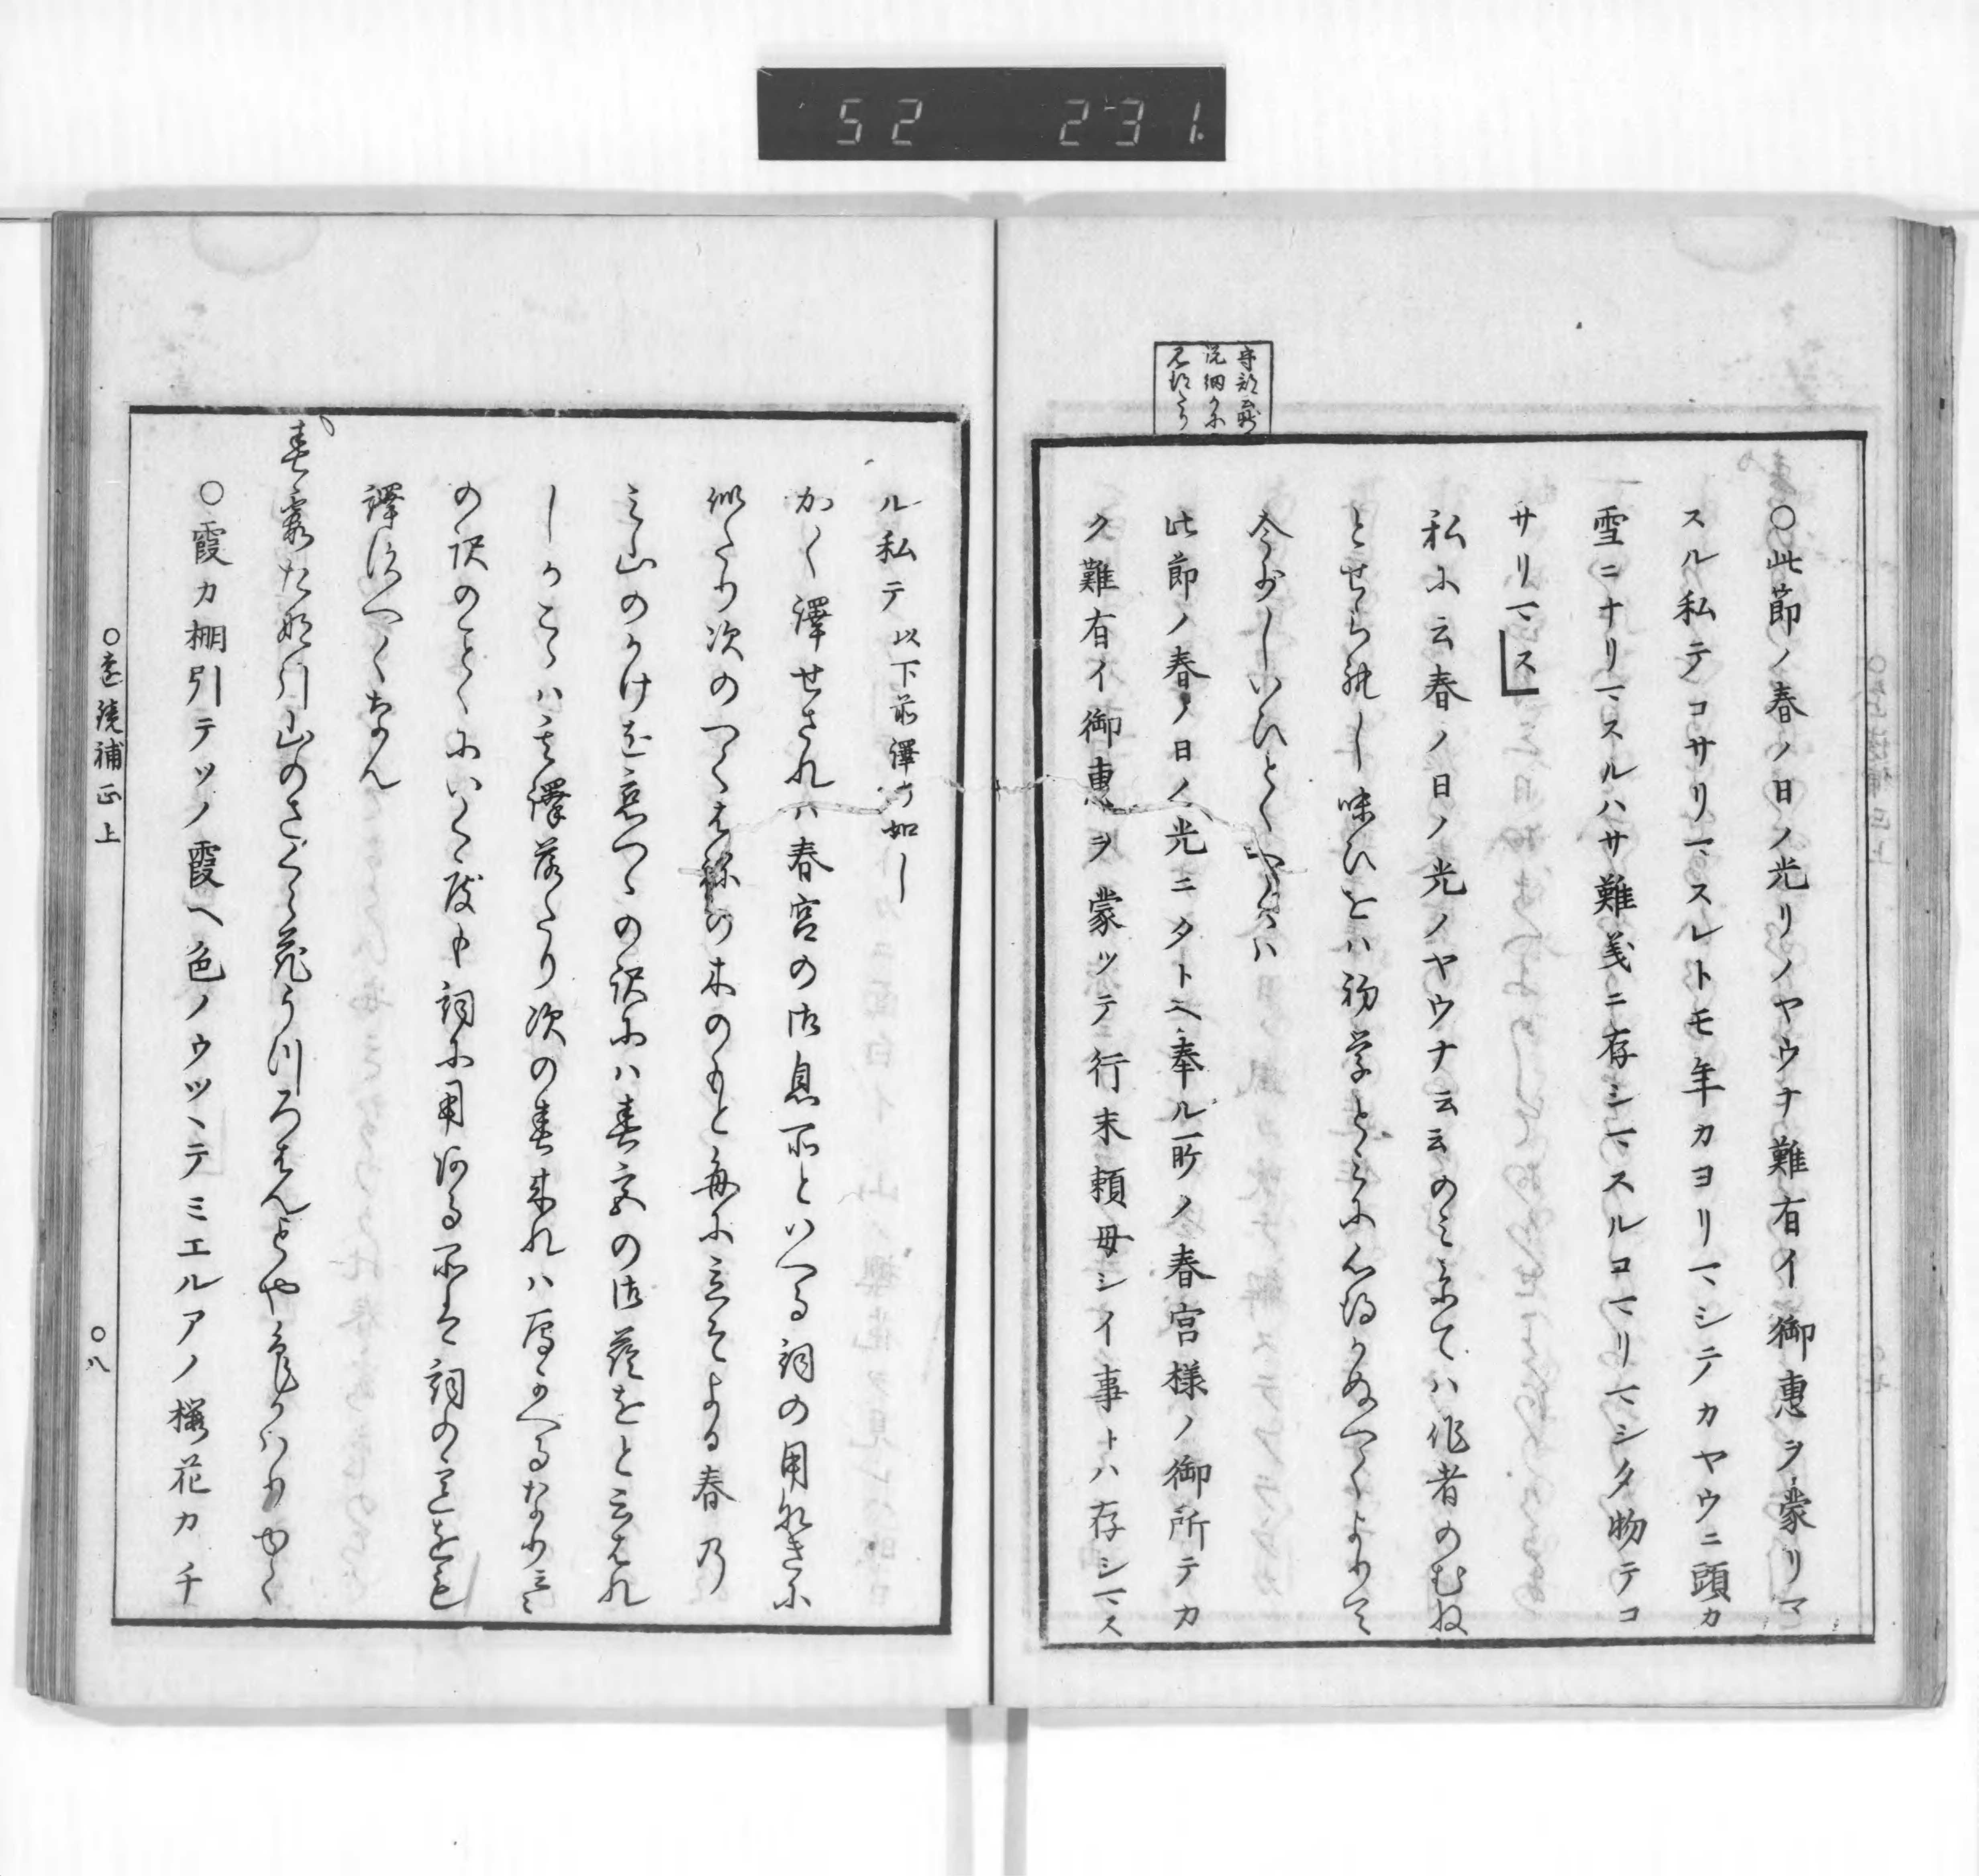 52 231.
○此節ノ春ノ日ノ光リノヤウナ難有イ御惠ヲ蒙リマ
スル私テコサリマスレトモ年カヨリマシテカヤウニ頭カ
雪ニナリマスルハサ難義ニ存シマスルコマリマシタ物テコ
サリマス
私に云春ノ日ノ光ノヤウナ云云のミにてハ作者のむね
とせら れし味ひをハ初学とミに心得かぬへくよりて
今少しいひとくへくハ
此節ノ春ノ日ノ光ニタトヘ奉ル所ノ春宮様ノ御所テカ
ク難有イ御惠ヲ蒙ツテ行末頼母シイ事トハ存シマス
ル私テ以下前譯ノ如し
かく譯せされハ春宮の御息所といへる詞の用なきに
似たり次のつくはねの木のもと毎に立そよる春乃
ミ山のかけを恋つゝの訳にハ春宮の御蔭をと云はれ
しかこゝハ其譯落たり次の春来れハ厂かへるなりミ
の訳のことくにいくゝ度も詞に用ある所は詞の まゝを も
譯すへくなん
春霞たな引山のさくら花うつろはんとや色かはりゆく
○霞カ棚引テツノ霞ヘ色ノウツヽテミエルアノ櫻花カチ
○遠鏡補正上
○八